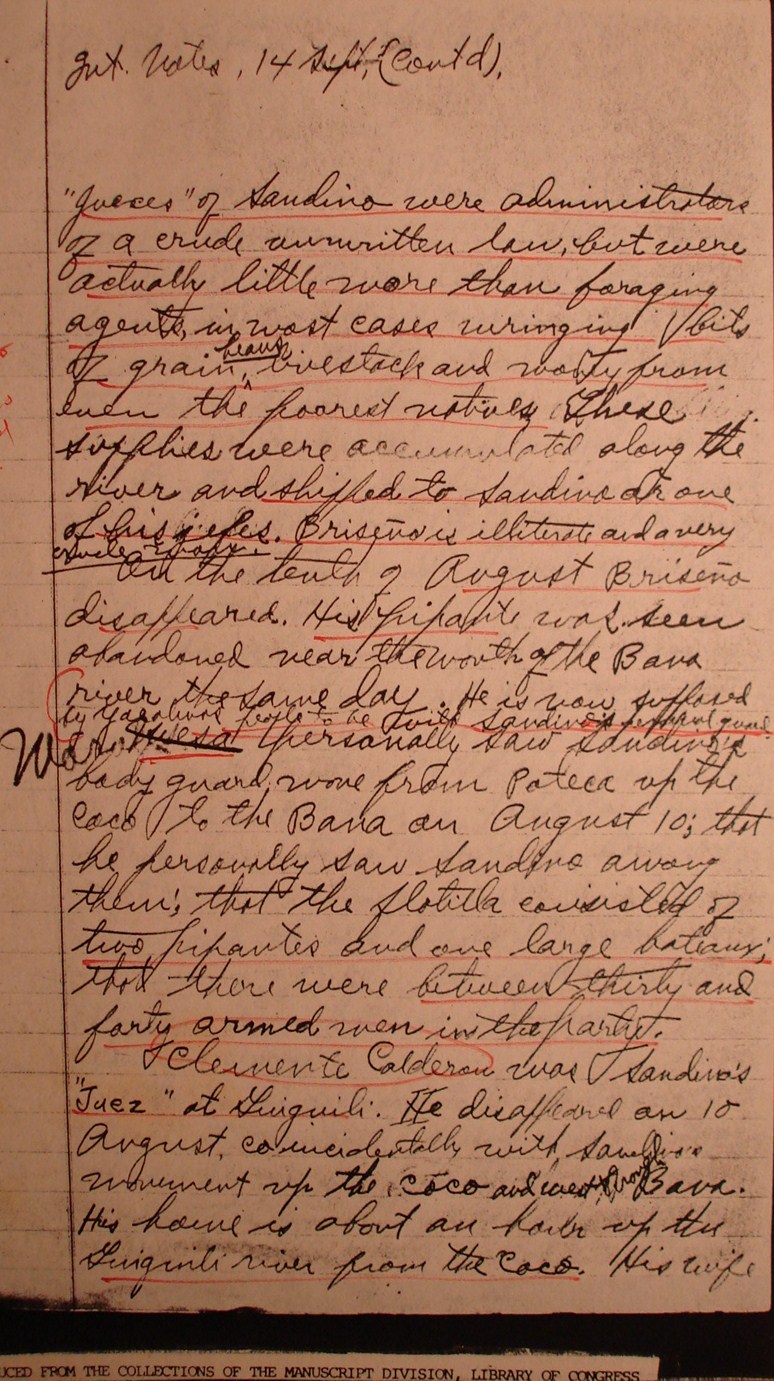 Int. Notes, 14 Sept, (Contd).
"Jueces" of Sandino were administrators
of a crude unwritten law, but were
actually little more than foraging
agents, in most cases wringing bits
of grain, beans, livestock and money from
even the poorest natives. These
supplies were accumulated along the
river and shipped to Sandino or one
of his jefes. Briseño is illiterate and a very
crude
On the tenth of August Briseño
disappeared. His pipante was seen
abandoned near the mouth of the Bana
river the same day. He is now supposed
by people to be with Sandino's personal guard
personally saw Sandino's
body guard move from Poteca up the
Coco to the Bana on August 10; that
he personally saw Sandino among
them; that the flotilla consisted of
two pipantes and one large bateaux;
that there were between thirty and
forty armed men in the party.
Clemente Calderon was Sandino's
"Juez" at Guiguili. He disappeared on 10
August, coincidentally with Sandino's
movement up the Coco and west through Bana.
His home is about an hour up the
Guiguili river from the Coco. His wife
UCED FROM THE COLLECTIONS OF THE MANUSCRIPT DIVISION, LIBRARY OF CONGRESS